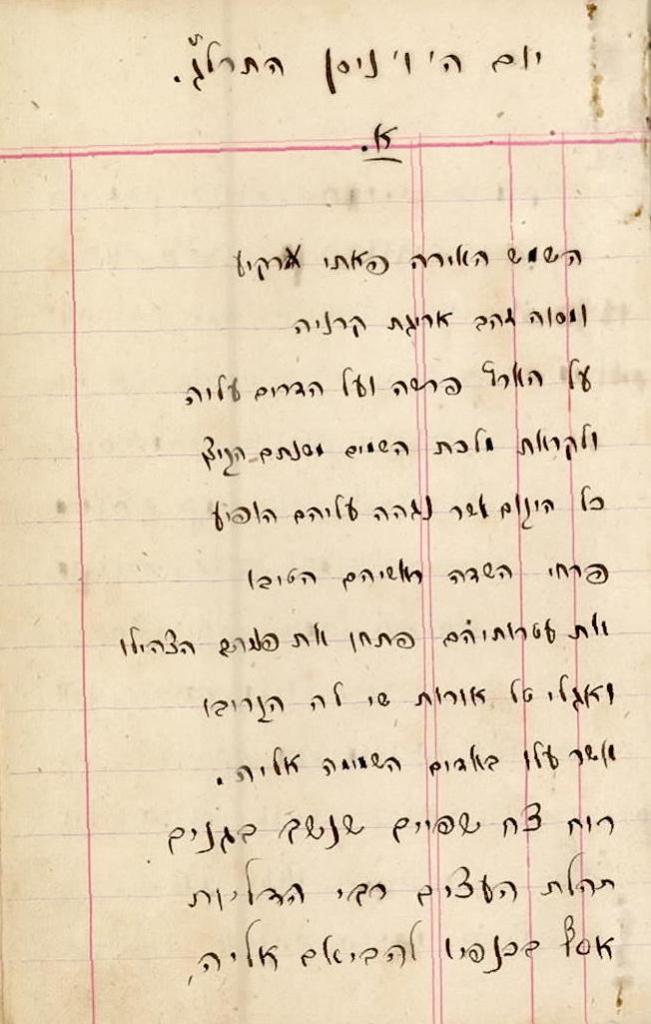 יום ה' ו' ניסן התרלג.
א.
השמש האירה פאתי ערקיע
ומסוה זהב אריגת קרניה
על הארץ פרשה ועל הדרים עליה
ולקראת מלכת השמים משנתם הקיץ
כל היקום אשר נגהה עליהם הופיע
פרחי השדה ראשיהם הטיבו
את עטרותיהם פתחו את פניהם הצהילו
ואגלי טל אורות שי לה הקריבו
אשר עלו באדים השמימה אליה.
רוח צח שפיים שנשב בגנים
תהלת העצים רבי הדליות
אסף בכנפיו להביאם אליה,